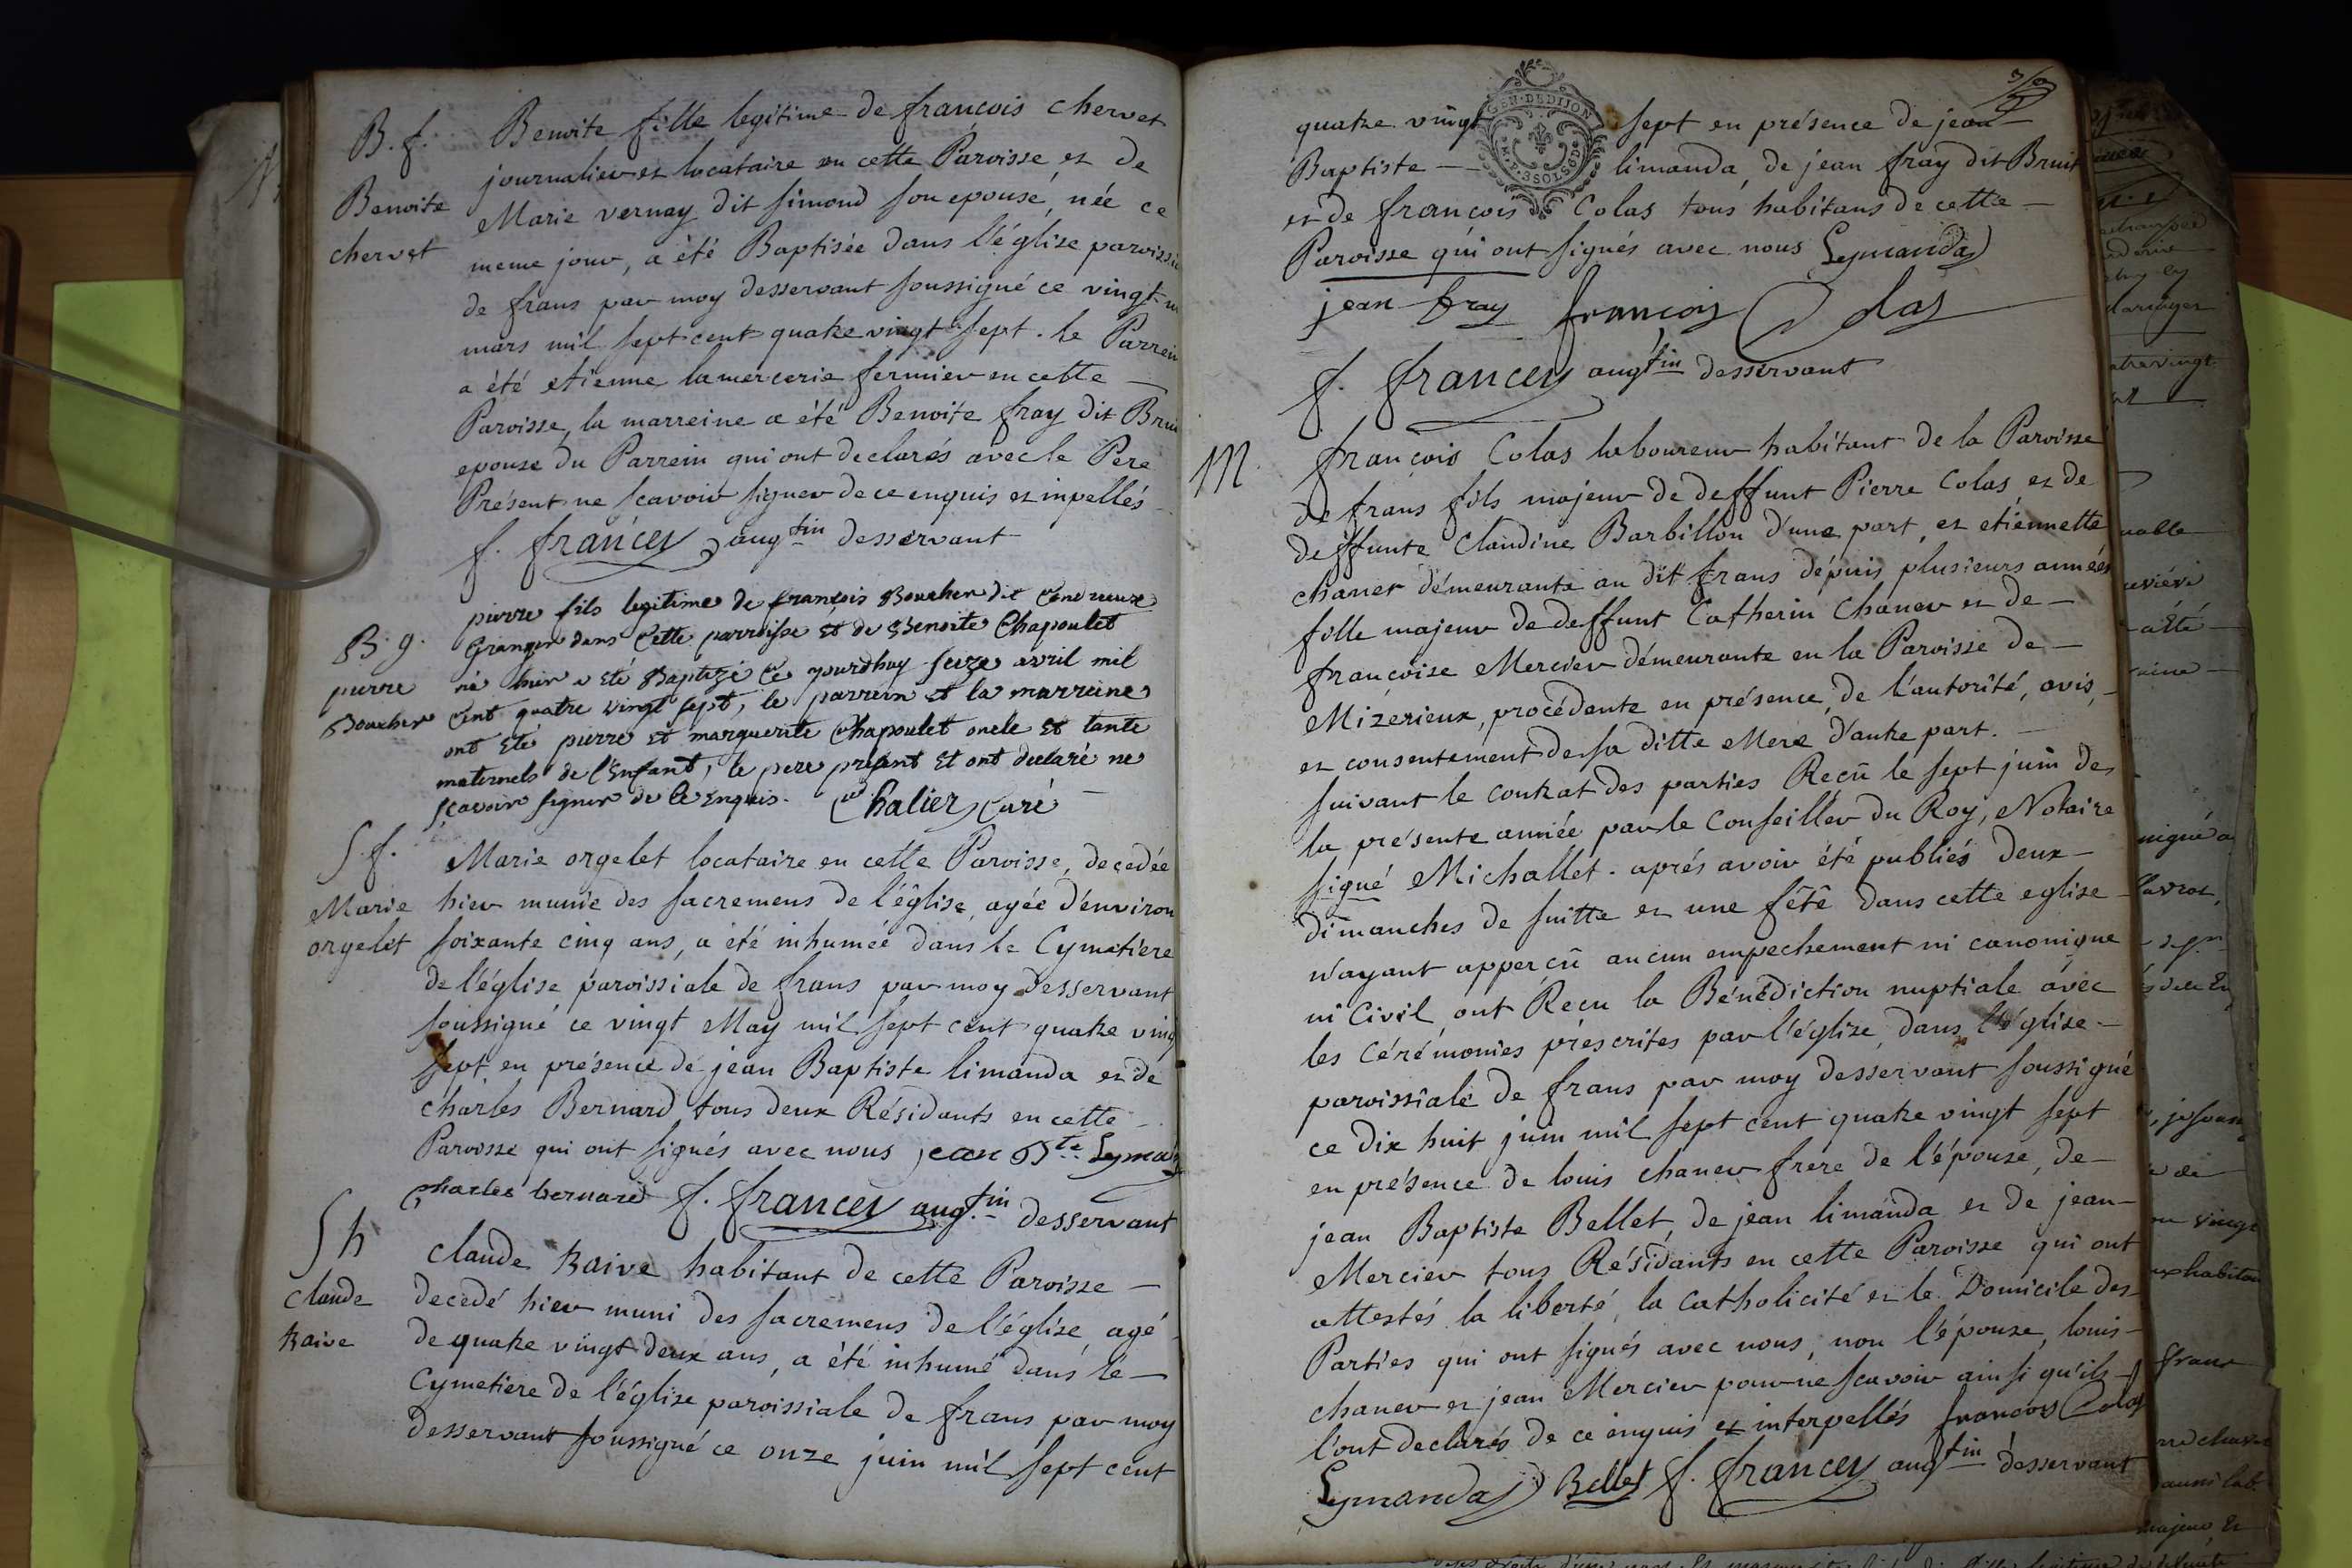 B. f.
Benoite
chervet
Benoite fille legitime de françois chervet
journalier et locataire en cette Paroisse et de
Marie vernay dit simond son epouse, née ce
meme jour, a été Baptisée dans l'église paroissi
de frans par moy desservant soussigné ce vingt
mars mil sept cent quatre vingt sept. le Parrein
a été etienne lamercerie fermier en cette —
Paroisse, la marreine a été Benoite fray dit Brui
epouse du Parrein qui ont declarés avec le Pere
Présent ne scavoir signer de ce enquis et inpellés
f. francey augtin desservant
B. g.
pierre
Boucher
pierre fils legitime de françois Boucher dit
Granger dans cette parroisse et de Benoite Chapoulet
né hier a eté Baptizé ce jourdhuy seize avril mil
cent quatre vingt sept, le parrein et la marreine
ont eté pierre et marguerite Chapoulet oncle et tante
maternels de l'enfant, le pere présent et ont declaré ne
scavoir signer de ce enquis. Chalier Curé
S. f.
Marie
orgelet
Marie orgelet locataire en cette Paroisse, decedée
hier munie des sacremens de l'église, agée d'environ
soixante cinq ans, a été inhumée dans le Cymetiere
de l'église paroissiale de frans par moy desservant
soussigné ce vingt May mil sept cent quatre ving
sept en présence de jean Baptiste limanda et de
charles Bernard tous deux Résidants en cette
Paroisse qui ont signés avec nous jean Bte Lyman
Charles bernard f. francey augtin desservant
S h
claude
Raive
claude Raive habitant de cette Paroisse —
decedé hier muni des sacremens de l'église, agé
de quatre vingt deux ans, a été inhumé dans le —
Cymetiere de l'église paroissiale de frans par moy
desservant soussigné ce onze juin mil sept cent
GEN. DE DIJON
M. P. 3 SOLS 6 D
quatre vingt sept en présence de jean —
Baptiste — limanda, de jean fray dit Bruit
et de françois Colas tous habitans de cette —
Paroisse qui ont signés avec nous Lymanda
jean fray françois Colas
f. francey augtin desservant
M.
françois Colas laboureur habitant de la Paroisse
de frans fils majeur de deffunt Pierre Colas et de
deffunte Claudine Barbillon d'une part, et etiennette
chaner démeurante au dit frans dépuis plusieurs années
fille majeur de deffunt Catherin Chaner et de —
françoise Mercier démeurante en la Paroisse de —
Mizerieux, procédente en présence, de l'autorité, avis,
et consentement de sa ditte Mere d'autre part. —
suivant le contrat des parties Reçû le sept juin de
la présente année par le Conseiller du Roy, Notaire
signé Michallet. aprés avoir été publiés deux —
dimanches de suitte et une fête dans cette eglise
n'ayant apperçû aucun empechement ni canonique
ni Civil, ont Reçu la Bénédiction nuptiale avec
les Cérémonies préscrites par l'église, dans l'église —
paroissiale de frans par moy desservant soussigné
ce dix huit juin mil sept cent quatre vingt sept
en présence de louis chaner frere de l'épouse, de —
jean Baptiste Bellet, de jean limanda et de jean —
Mercier tous Résidants en cette Paroisse qui ont
attestés la liberté, la Catholicité et le Domicile des
Parties qui ont signés avec nous, non l'épouse, louis —
chaner et jean Mercier pour ne scavoir ainsi qu'ils —
l'ont declarés de ce enquis et interpellés françois Colas
Lymanda Bellet f. francey augtin desservant